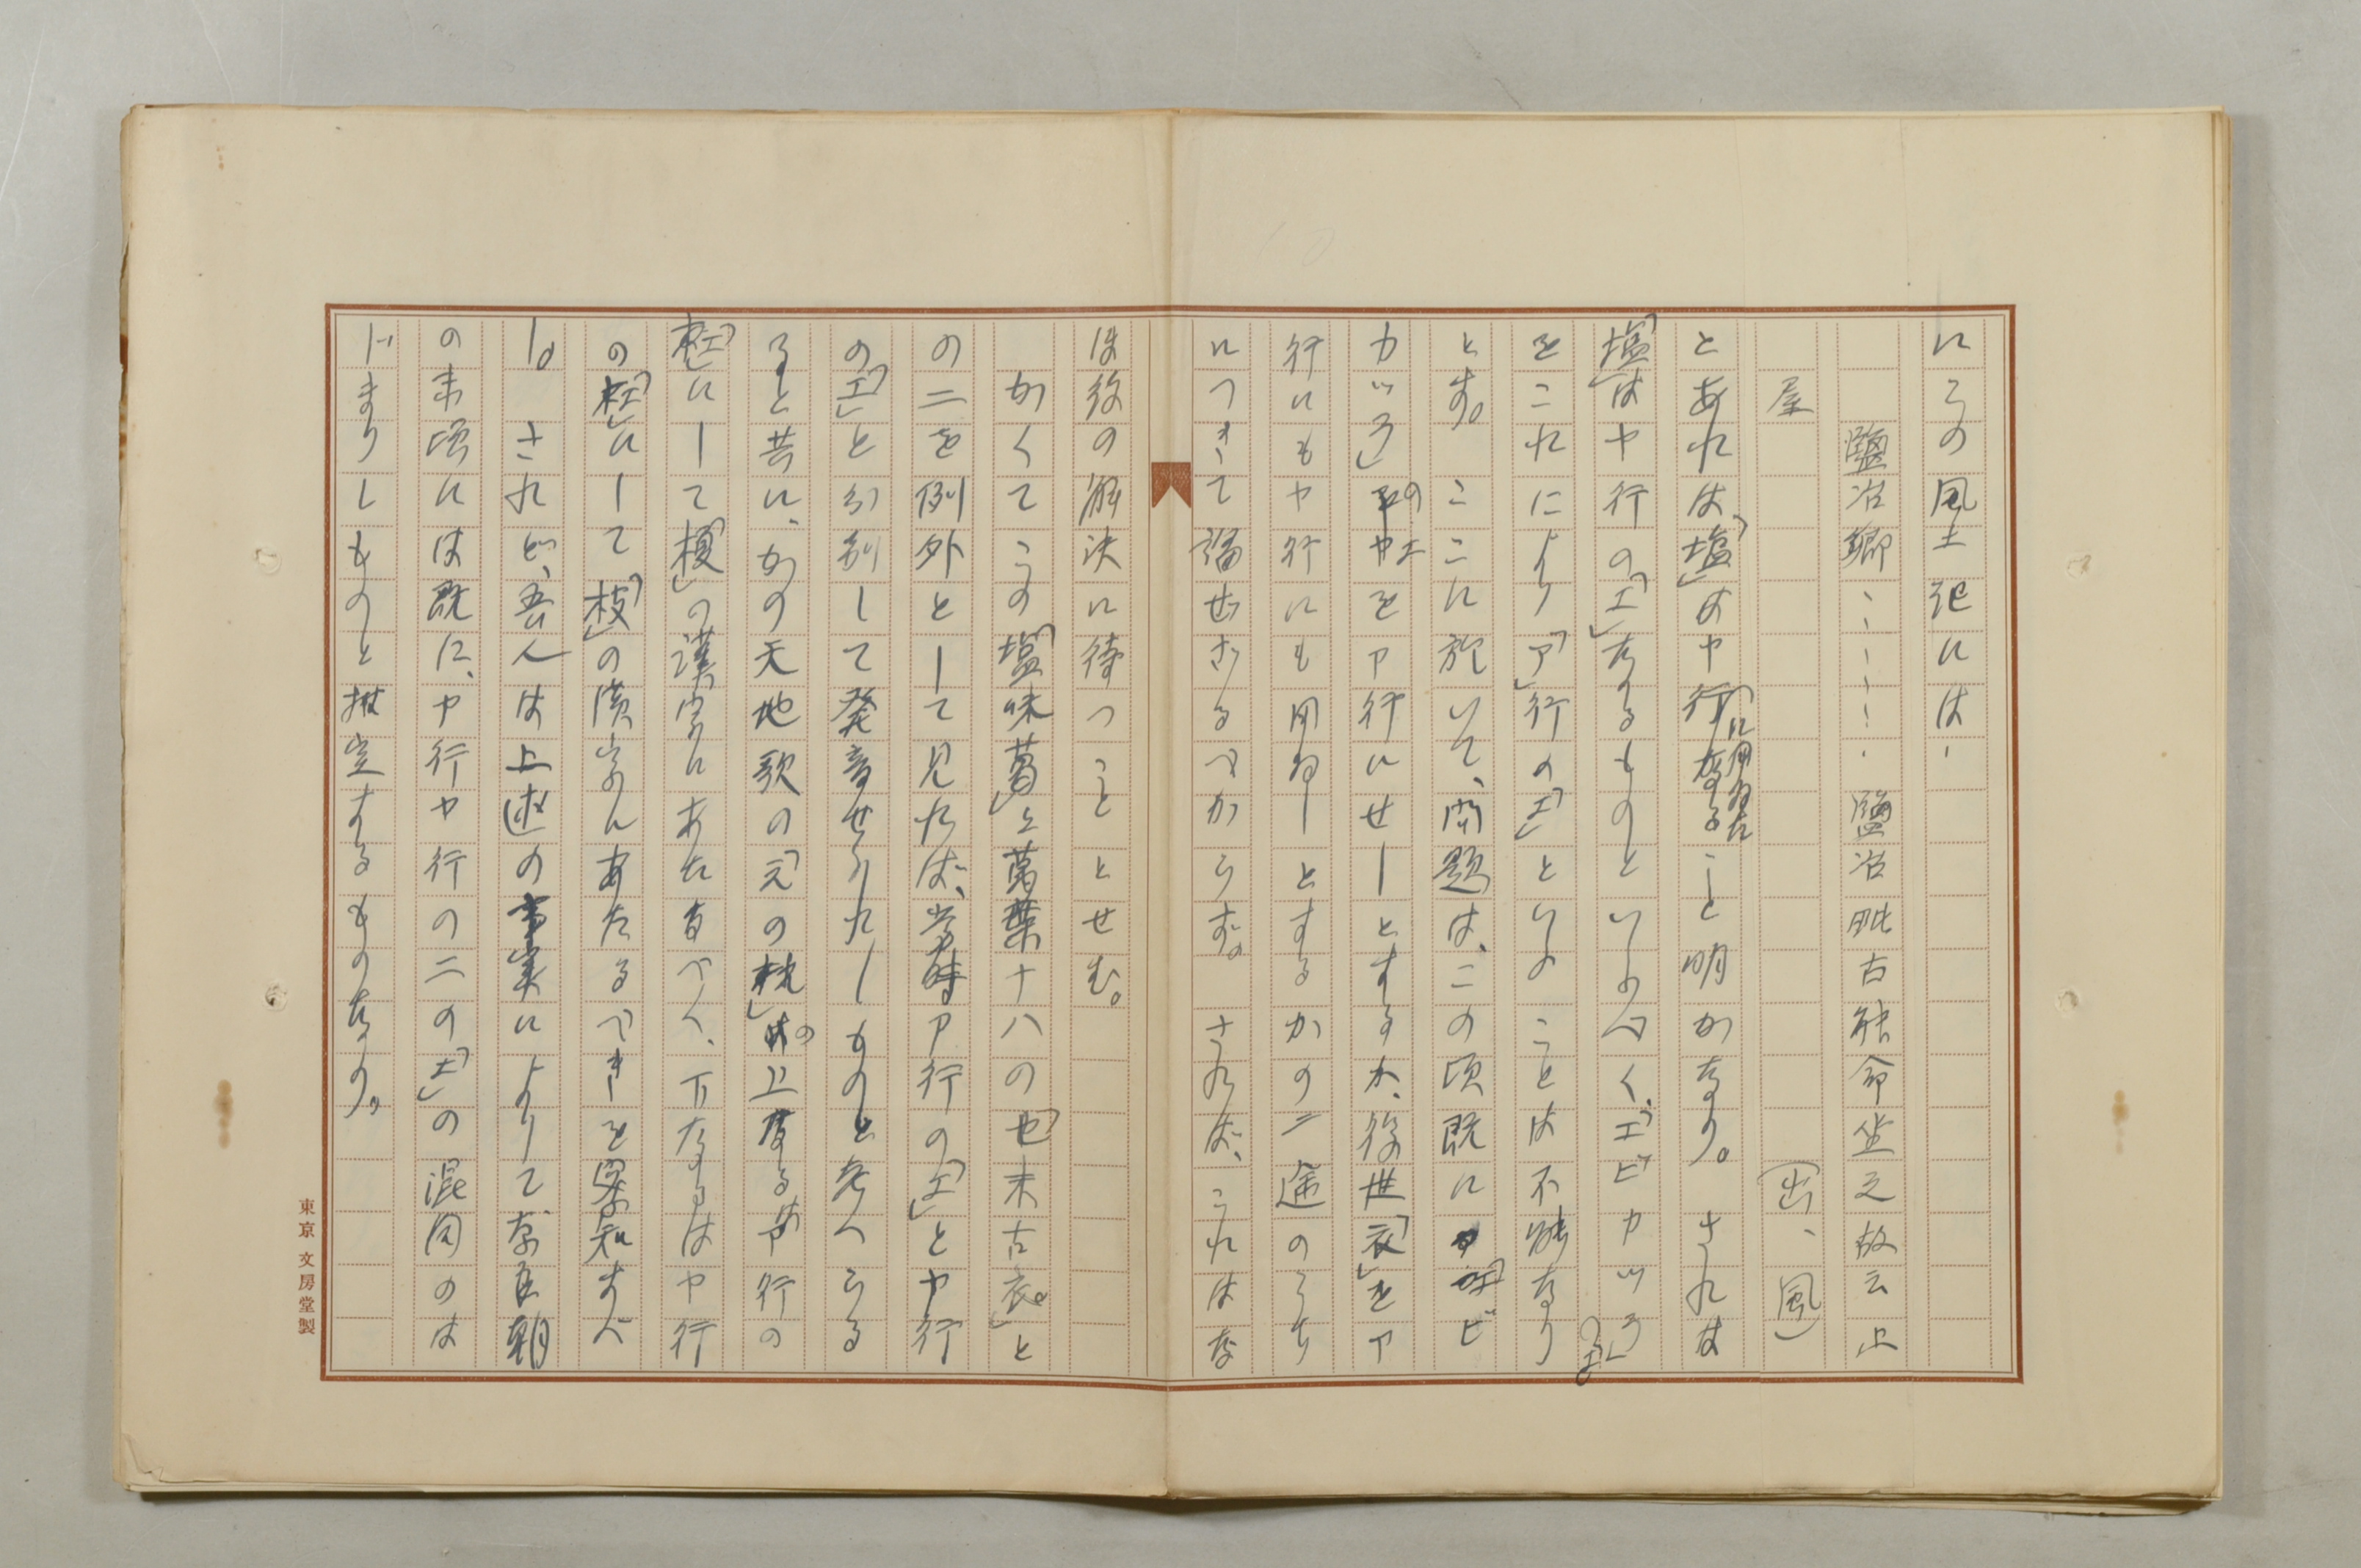 にこの風土記には、
鹽冶郷、、、、、、鹽冶毗古能命坐之故云止
屋　（出、風）
とあれは「塩」はヤ行に用ゐたること明かなり。されは
「塩」はヤ行の「エ」なるものといふべく、「エビカツラ」
をこれにより「ア」行の「エ」といふことは不能なり
とす。ここに於いて、問題は、この頃既に「エビ
カツラ」のエをア行にせしとするか、後世「衣」をア
行にもヤ行にも用ゐしとするかの二途のうち
につきて論ぜざるべからず。されば、これはな
ほ後の解決に待つこととせむ。
かくてこの「塩味葛」と萬葉十八の「也末古衣」と
の二を例外として見れば、当時ア行の「エ」とヤ行
の「エ」と分別して発音せられしものと考へらる
ると共に、かの天地歌の「えの枝」の上なるはア行の
「荏」にして「榎」の漢字にあたるべく、下なるはヤ行
の「枝」にして「枝」の漢字にあたるべきを深知すべ
し。されど、吾人は上述の事実によりて、奈良朝
の末頃には既に、ヤ行ヤ行の二の「エ」の混同のは
じまりしものと推定するものなり。
東京 文房堂製